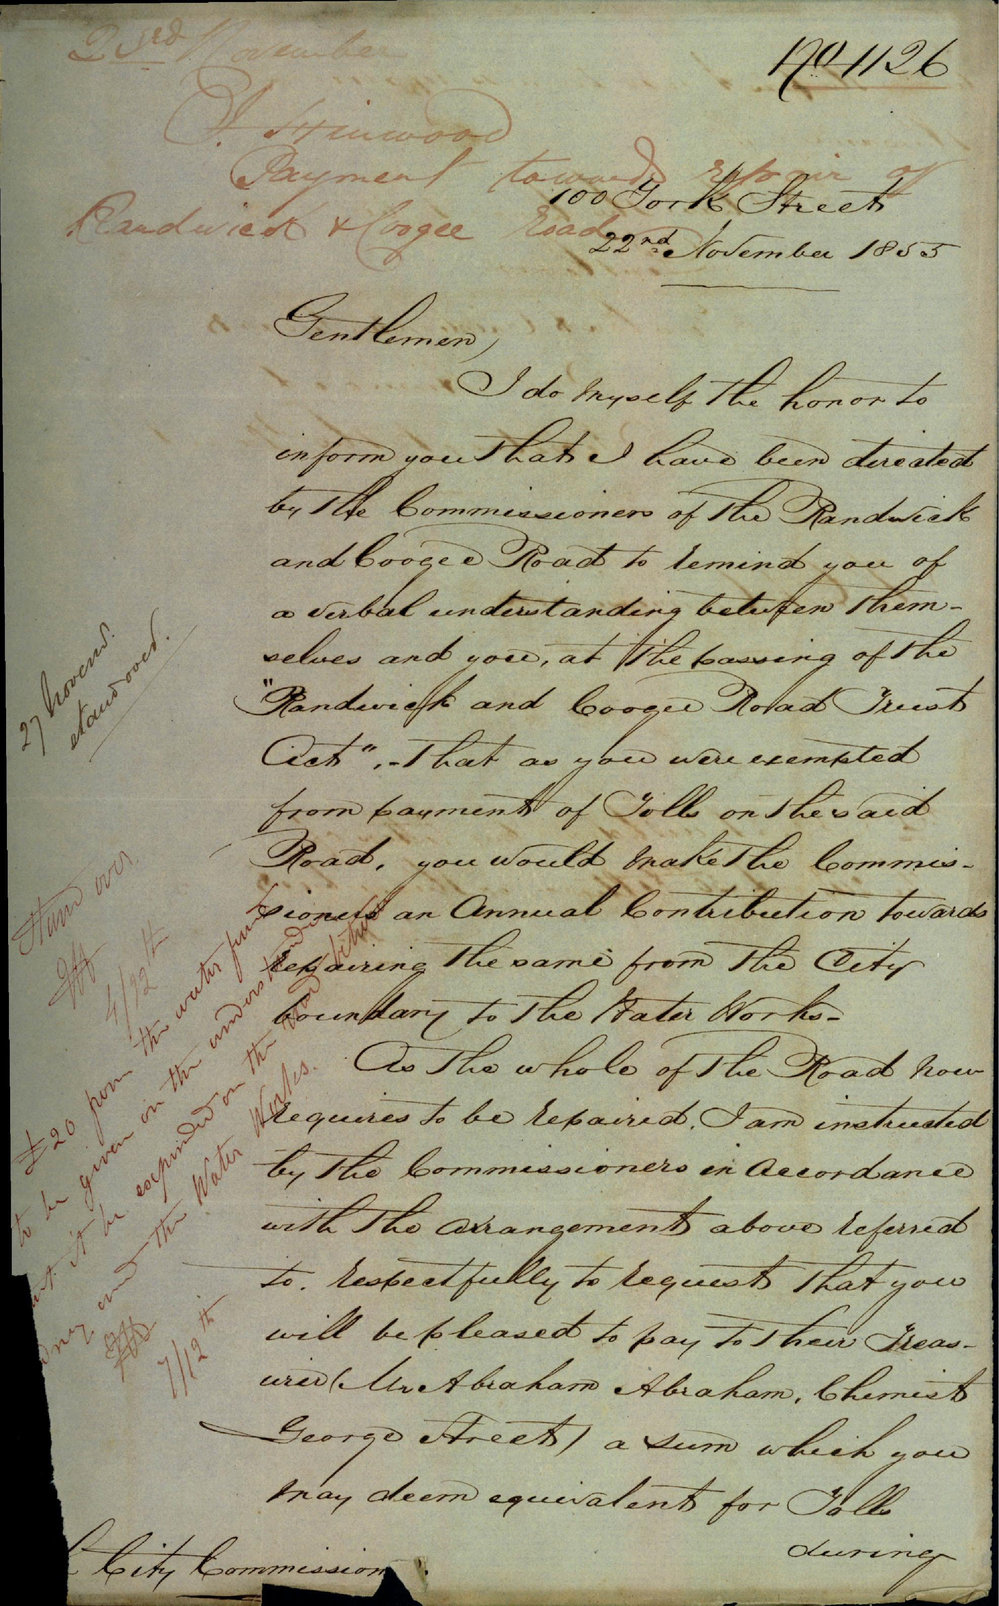 No 1126
23rd November
J. Hinwood
Payment towards repair of
Randwick & Coogee Road
100 York Street
22nd November 1855
Gentlemen,
I do myself the honor to
inform you that I have been directed
by the Commissioners of the Randwick
and Coogee Road to remind you of
a verbal understanding between them-
selves and you, at the passing of the
"Randwick and Coogee Road Trust
Act",- that as you were exempted
from payment of Tolls on the said
Road, you would make the Commis-
sioners an Annual Contribution towards
repairing the same from the City
boundary to the Water Works-
As the whole of the Road now
requires to be repaired. I am instructed
by the Commissioners in accordance
with the arrangement above referred
to. respectfully to request that you
will be pleased to pay to their Treas-
urer (Mr Abraham Abraham, Chemist
George Street) a sum which you
may deem equivalent for Tolls
during
City Commission
27 Novem.
stand over.
Stand over
4/12th
£20 from the water fund
to be given on the understanding
it be expended on the road between
and the Water Works.
7/12th